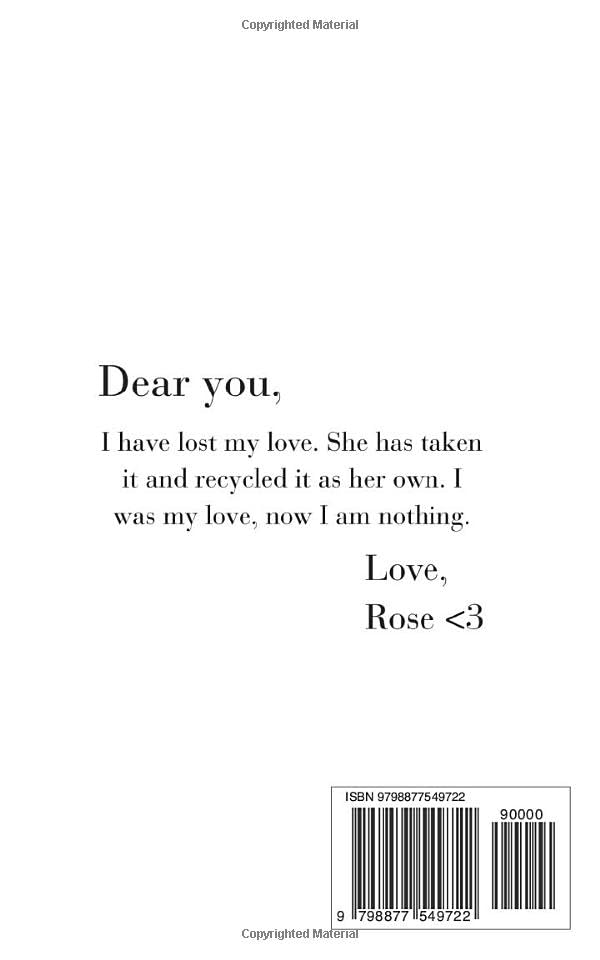 Copyrighted Material
Dear you,
I have lost my love. She has taken
it and recycled it as her own. I
was my love, now I am nothing.
Love,
Rose <3
ISBN 9798877549722
90000
9 798877 549722
Copyrighted Material